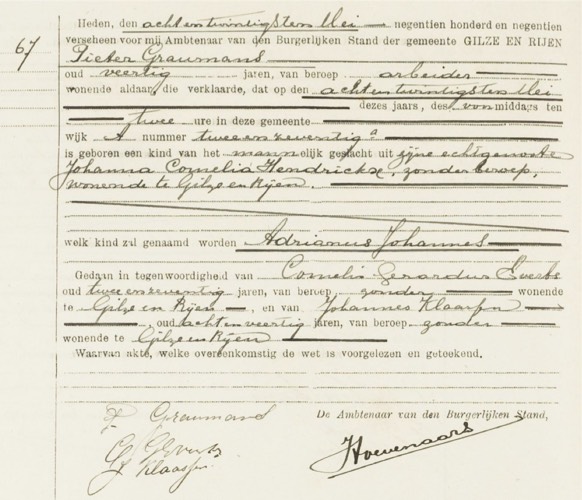 Heden, den achtentwintigsten Mei negentien honderd en negentien
67
verscheen voor mij Ambtenaar van den Burgerlijken Stand der gemeente GILZE EN RIJEN
Pieter Graumans
oud veertig jaren, van beroep arbeider
wonende aldaar, die verklaarde, dat op den achtentwintigsten Mei
dezes jaars, des voormiddags ten
twee ure in deze gemeente
wijk A nummer tweeenzeventig a
is geboren een kind van het mannelijk geslacht uit zijne echtgenoote
Johanna Cornelia Hendrickx, zonder beroep,
wonende te Gilze en Rijen.
welk kind zal genaamd worden Adrianus Johannes
Gedaan in tegenwoordigheid van Cornelis Gerardus Everts
oud tweeenzeventig jaren, van beroep zonder wonende
te Gilze en Rijen, en van Johannes Klaassen
, oud achtenveertig jaren, van beroep zonder
wonende te Gilze en Rijen
Waarvan akte, welke overeenkomstig de wet is voorgelezen en geteekend.
P Graumans
De Ambtenaar van den Burgerlijken Stand,
Everts
Klaassen
Hoevenaars